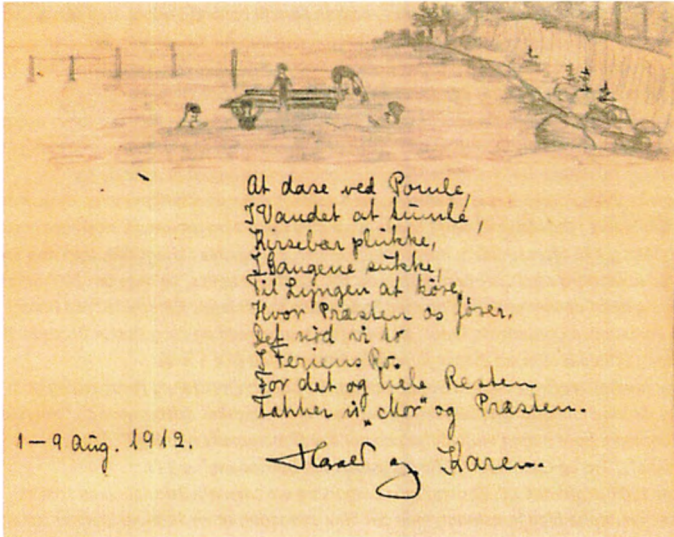 At dase ved Pomle,
I Vandet at tumle,
Kirsebær plukke,
I Gangene sukke,
Til Lyngen at köre,
Hvor Præsten os förer.
Det nöd vi to
I Feriens Ro.
For det og hele Resten
Takker vi "Mor" og Præsten.
1-9 Aug. 1912.
Harald og Karen.